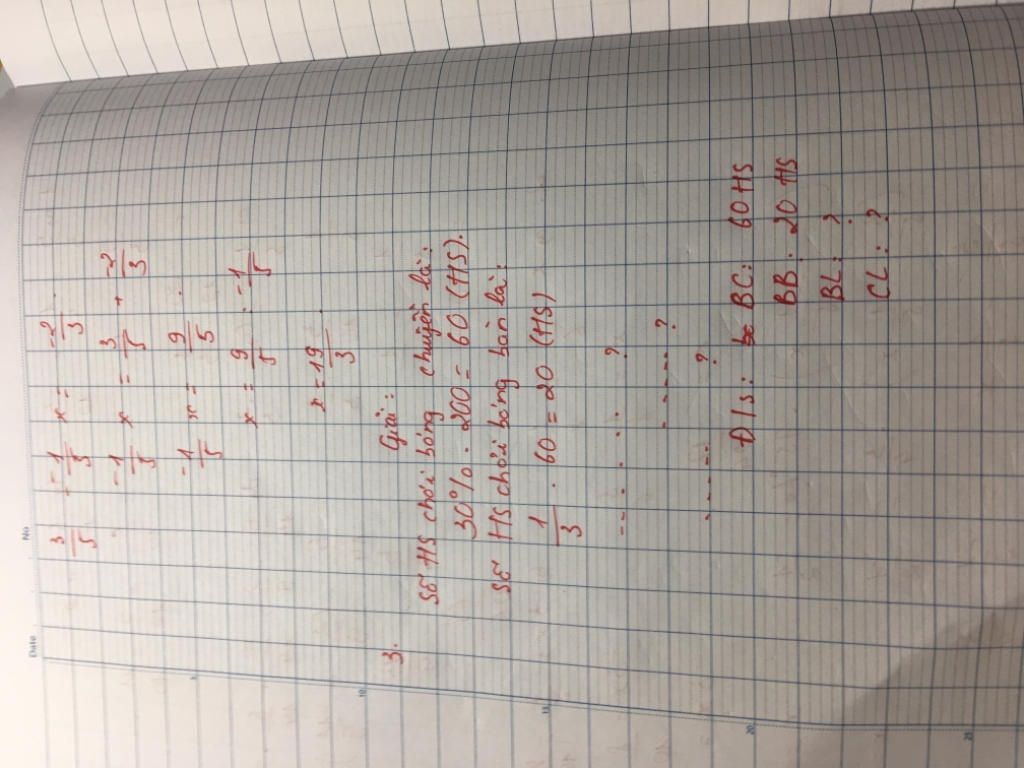 Date No
3/5 - -1/5 x = -2/3
-1/5 x = 3/5 + -2/3
-1/5 x = 9/5
x = 9/5 : -1/5
x = 19/3
3. Giải:
Số HS chơi bóng chuyền là:
30% . 200 = 60 (HS).
Số HS chơi bóng bàn là:
1/3 . 60 = 20 (HS)
.......?
......?
......?
Đ/s: BC: 60 HS
BB: 20 HS
BL: ?
CL: ?
10
15
20
25